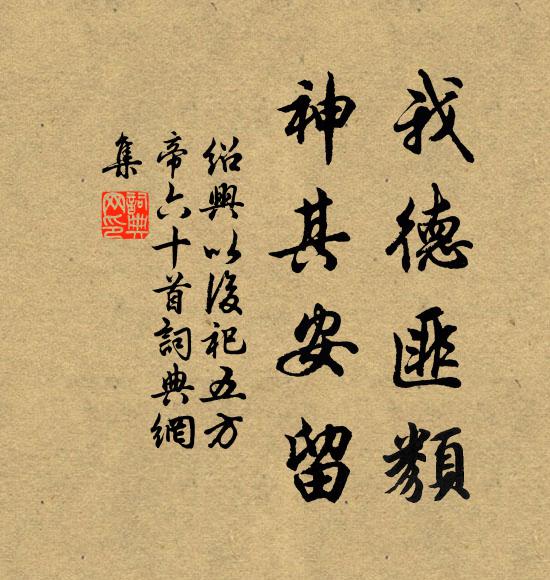 我德匪纇
神其安留
紹興以後祀五方
帝六十首詞典網
集
詞典
网印